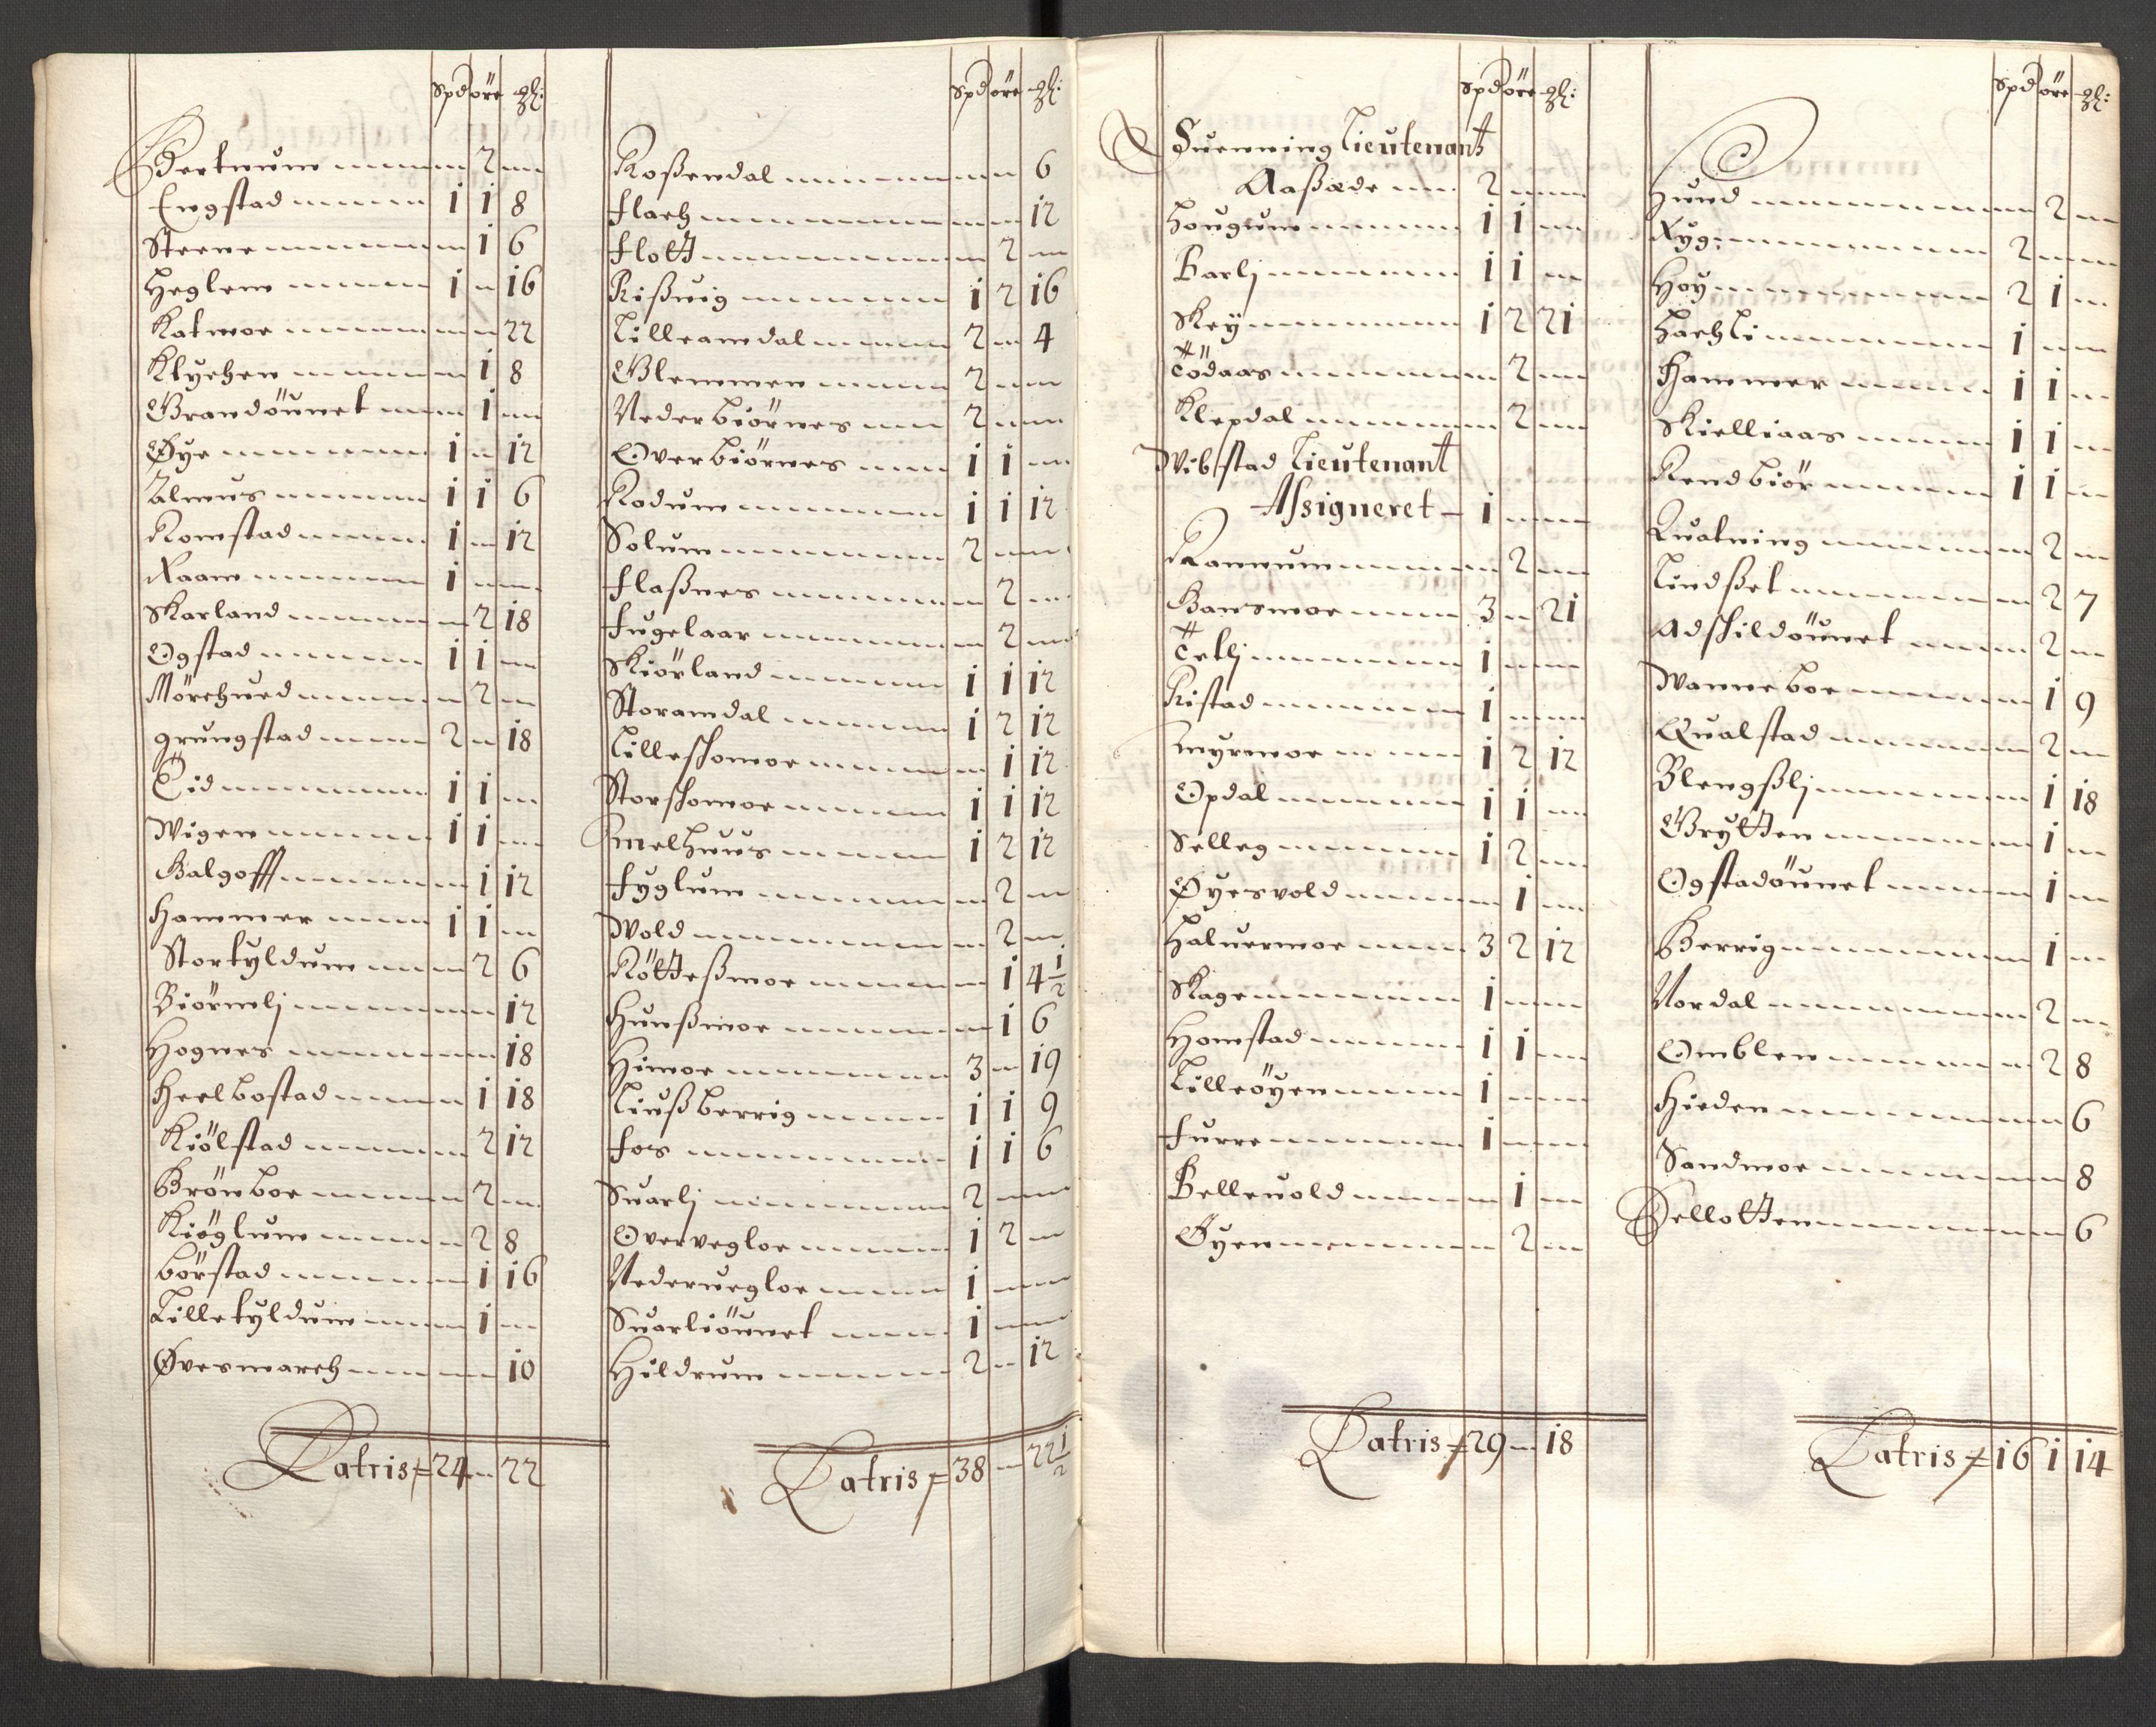 Spd öre gl:
Bertnum 2
Engstad 1 1 8
Steene 1 6
Heglem 1 16
Katmoe 22
Klychen 1 8
Grandöunet 1
Øye 1 12
Rälmus 1 1 6
Romstad 1 12
Raam 1
Skarland 2 18
Ogstad 1 1
Mörchued 2
grungstad 2 18
Eid 1 1
Wigen 1 1
Galgoff 1 12
Hammer 1 1
Stortyldum 2 6
Biörnlj 12
Hognes 18
Heelbostad 1 18
Kiölstad 2 12
Brönboe 2
Kiöglum 2 8
börstad 1 16
Lilletyldum 1
Øvesmarch 10
Latris 24 22
Spd öre gl:
Roßendal 6
Flach 12
Flott 2
Rißvig 1 2 16
Lilleamdal 2 4
Glemmen 2
Nederbiörnes 2
Overbiörnes 1 1
Rodum 1 1 12
Solum 2
Flaßnes 2
Fugelaar 2
Skiörland 1 1 12
Storamdal 1 2 12
Lilleschomoe 1 12
Storschomoe 1 1 12
melhuus 1 2 12
Fyglum 2
Wold 2
Rötteßmoe 1 4½
Hunßmoe 1 6
Himoe 3 19
Liußberrig 1 1 9
Fos 1 1 6
Suarlj 2
Overvegloe 1 2
Nederuegloe 1
Suarliöunet 1
Hildrum 2 12
Latris 38 22½
Spd öre gl:
Suenning Lieutenant
Aaßæde 2
Hougum 1 1
Barlj 1 1
Skey 1 2 21
Tödaas 2
Klepdal 2
Wibstad Lieutenant
Assigneret 1
Rannum 2
Gansmoe 3 21
Tetlj 1
Ristad 1
myrmoe 1 2 12
Opdal 1 1
Selleg 1 2
Øyesvold 1
Haluermoe 3 2 12
Skage 1
Homstad 1 1
Lilleöyen 1
Furre 1
Belleuold 1
Øyen 2
Latris 29 18
Spd öre gl:
Hund 2
Ryg: 2
Hoy 2 1
Hachli 1
Hammer 1 1
Kielliaas 1 1
Rendbiör 1 1
Quatning 2
Lindßet 2 7
Adschildöunet 2
Wanneboe 1 9
Qualstad 2
Blengßlj 1 18
Grytten 1
Ogstadöunet 1
Berrig 1
Nordal 2
Omblen 2 8
Hieden 6
Sandmoe 8
Sellotten 6
Latris 16 1 14